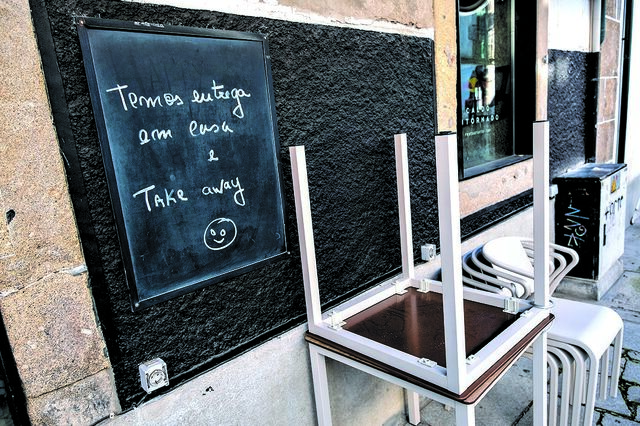 Temos entrega
em casa
e
TAKE away